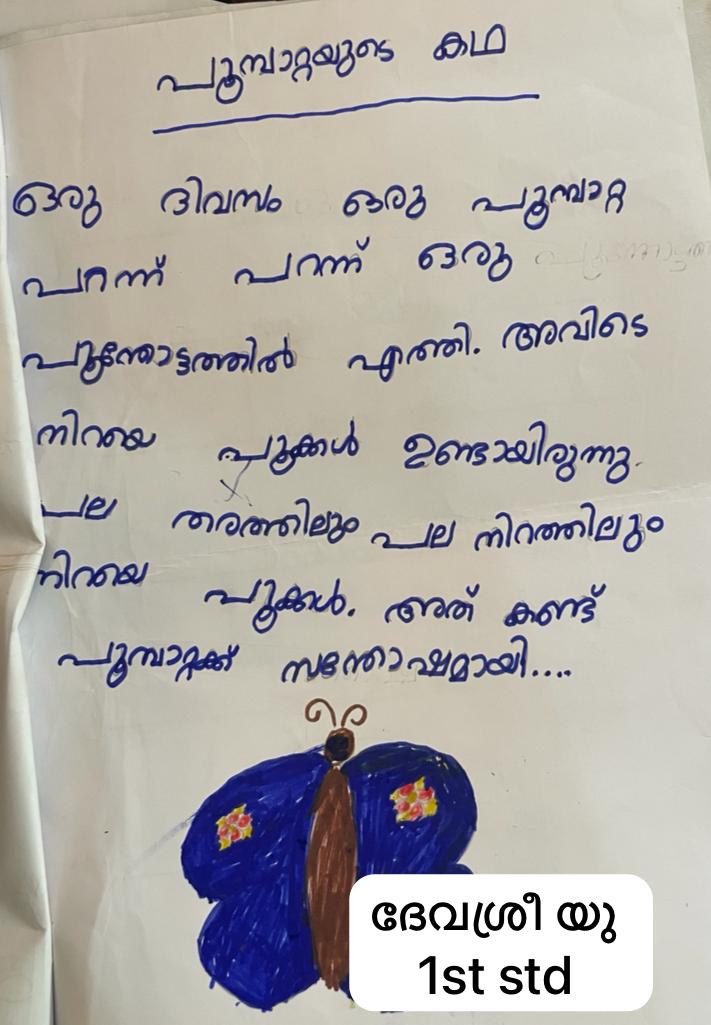 പൂമ്പാറ്റയുടെ കഥ
ഒരു ദിവസം ഒരു പൂമ്പാറ്റ
പറന്ന് പറന്ന് ഒരു
പൂന്തോട്ടത്തിൽ എത്തി. അവിടെ
നിറയെ പൂക്കൾ ഉണ്ടായിരുന്നു.
പല തരത്തിലും പല നിറത്തിലും
നിറയെ പൂക്കൾ. അത് കണ്ട്
പൂമ്പാറ്റക്ക് സന്തോഷമായി....
ദേവശ്രീ യു
1st std